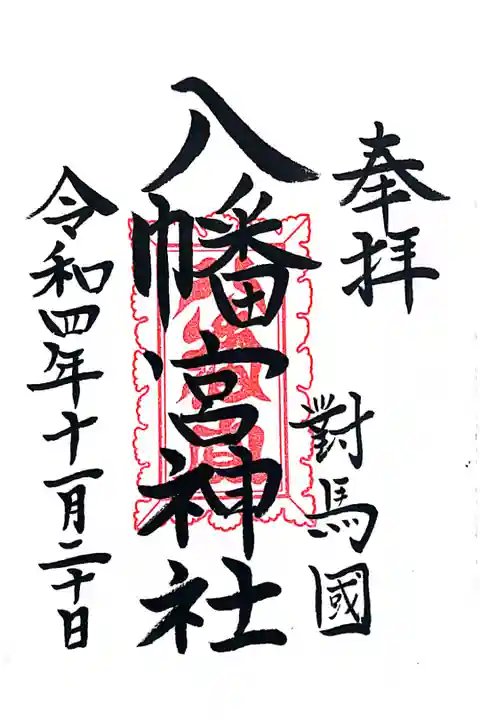 奉拝
對馬國
八幡宮神社
令和四年十一月二十日